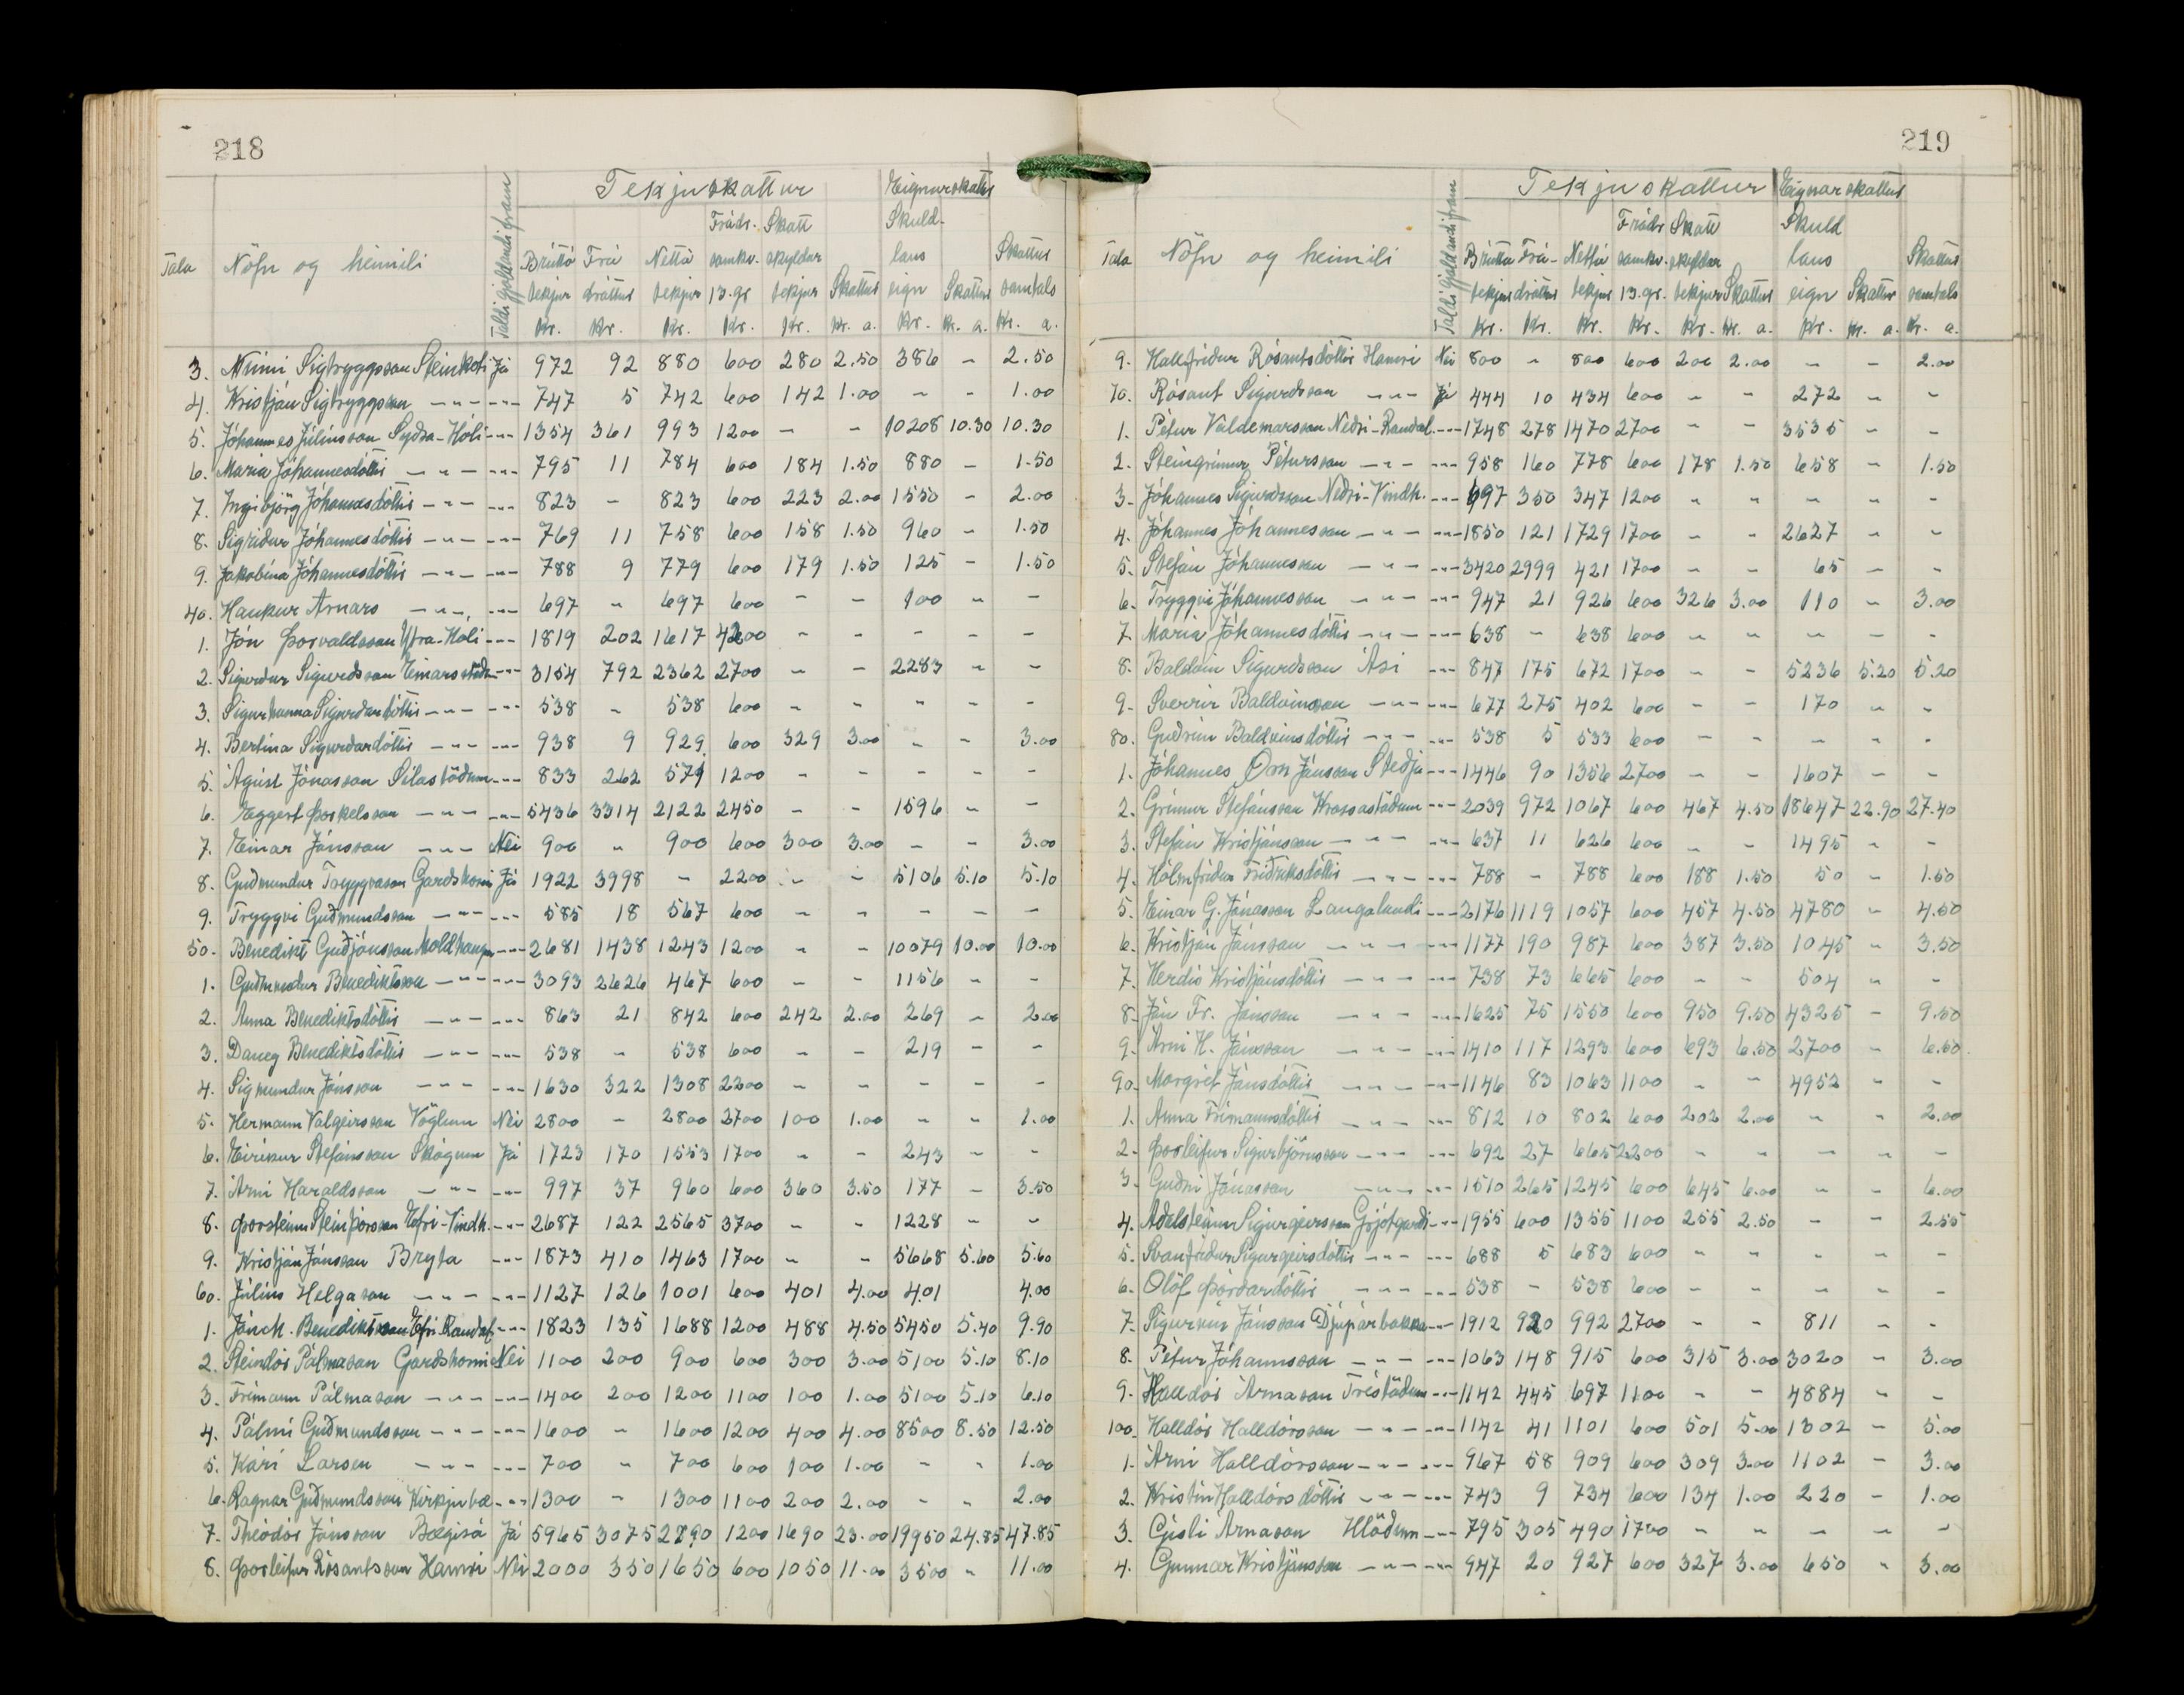 218
Tekjuskattur Eignarskattur
Tala Nöfn og heimili Taldi gjaldandi fram Brúttó tekjur Kr. Frádráttur Kr. Nettó tekjur Kr. Frádr. samkv. 13. gr. Kr. Skattskyldar tekjur Kr. Skattur Kr. a. Skuldlaus eign Kr. Skattur Kr. a. Skattur samtals Kr. a.
3. Númi Sigtryggsson Steinkoti Já 972 92 880 600 280 2.50 386 - 2.50
4. Kristján Sigtryggsson -"- -"- 747 5 742 600 142 1.00 - - 1.00
5. Jóhannes Júlíusson Sydra-Holi -"- 1354 361 993 1200 - - 10208 10.30 10.30
6. María Jóhannesdóttir -"- -"- 795 11 784 600 184 1.50 880 - 1.50
7. Ingibjörg Jóhannesdóttir -"- -"- 823 - 823 600 223 2.00 1550 - 2.00
8. Sigríður Jóhannesdóttir -"- -"- 769 11 758 600 158 1.50 960 - 1.50
9. Jakobína Jóhannesdóttir -"- -"- 788 9 779 600 179 1.50 125 - 1.50
40. Haukur Arnars -"- -"- 697 - 697 600 - - 100 - -
1. Jón Þorvaldsson Ytra-Holi -"- 1819 202 1617 4200 - - - - -
2. Sigurdur Sigurdsson Einarsstödum -"- 3154 792 2362 2700 - - 2283 - -
3. Sigurhanna Sigurdardóttir -"- -"- 538 - 538 600 - - - - -
4. Bertína Sigurdardóttir -"- -"- 938 9 929 600 329 3.00 - - 3.00
5. Ágúst Jónasson Sílastödum -"- 833 262 571 1200 - - - - -
6. Eggert Þorkelsson -"- -"- 5436 3314 2122 2450 - - 1596 - -
7. Einar Jónsson -"- Nei 900 - 900 600 300 3.00 - - 3.00
8. Gudmundur Tryggvason Gardshorni Já 1922 3998 - 2200 - - 5106 5.10 5.10
9. Tryggvi Gudmundsson -"- -"- 585 18 567 600 - - - - -
50. Benedikt Gudjónsson Moldhaugum -"- 2681 1438 1243 1200 - - 10079 10.00 10.00
1. Gudmundur Benediktsson -"- -"- 3093 2626 467 600 - - 1156 - -
2. Anna Benediktsdóttir -"- -"- 863 21 842 600 242 2.00 269 - 2.00
3. Daney Benediktsdóttir -"- -"- 538 - 538 600 - - 219 - -
4. Sigmundur Jónsson -"- -"- 1630 322 1308 2200 - - - - -
5. Hermann Valgeirsson Vöglum Nei 2800 - 2800 2700 100 1.00 - - 1.00
6. Eiríkur Stefánsson Skógum Já 1723 170 1553 1700 - - 243 - -
7. Árni Haraldsson -"- -"- 997 37 960 600 360 3.50 177 - 3.50
8. Þorsteinn Steinþórsson Efri-Vindh. -"- 2687 122 2565 3700 - - 1228 - -
9. Kristján Jónsson Bryta -"- 1873 410 1463 1700 - - 5668 5.60 5.60
60. Júlíus Helgason -"- -"- 1127 126 1001 600 401 4.00 401 4.00
1. Benediktsson Efri Raudal. -"- 1823 135 1688 1200 488 4.50 5450 5.40 9.90
2. Steindór Pálmason Gardshorni Nei 1100 200 900 600 300 3.00 5100 5.10 8.10
3. Frímann Pálmason -"- -"- 1400 200 1200 1100 100 1.00 5100 5.10 6.10
4. Pálmi Gudmundsson -"- -"- 1600 - 1600 1200 400 4.00 8500 8.50 12.50
5. Kári Larsen -"- -"- 700 - 700 600 100 1.00 - - 1.00
6. Ragnar Gudmundsson Kirkjubæ -"- 1300 - 1300 1100 200 2.00 - - 2.00
7. Theódór Jónsson Bægisá Já 5965 3075 2890 1200 1690 23.00 19950 24.85 47.85
8. Þorleifur Rósantsson Hamri Nei 2000 350 1650 600 1050 11.00 3500 - 11.00
219
Tekjuskattur Eignarskattur
Tala Nöfn og heimili Taldi gjaldandi fram Brúttó tekjur Kr. Frádráttur Kr. Nettó tekjur Kr. Frádr. samkv. 13. gr. Kr. Skattskyldar tekjur Kr. Skattur Kr. a. Skuldlaus eign Kr. Skattur Kr. a. Skattur samtals Kr. a.
9. Hallfríður Rósantsdóttir Hamri Nei 800 - 800 600 200 2.00 - - 2.00
70. Rósant Sigurdsson -"- Já 444 10 434 600 - - 272 - -
1. Pétur Valdemarsson Nedri-Raudal. -"- 1748 278 1470 2700 - - 3535 - -
2. Steingrímur Pétursson -"- -"- 958 160 778 600 178 1.50 658 - 1.50
3. Jóhannes Sigurdsson Nedri-Vindh. -"- 697 350 347 1200 - - - - -
4. Jóhannes Jóhannesson -"- -"- 1850 121 1729 1700 - - 2627 - -
5. Stefán Jóhannesson -"- -"- 3420 2999 421 1700 - - 65 - -
6. Tryggvi Jóhannesson -"- -"- 947 21 926 600 326 3.00 110 - 3.00
7. María Jóhannesdóttir -"- -"- 638 - 638 600 - - - - -
8. Baldvin Sigurdsson Ási -"- 847 175 672 1700 - - 5236 5.20 5.20
9. Sverrir Baldvinsson -"- -"- 677 275 402 600 - - 170 - -
80. Gudrún Baldvinsdóttir -"- -"- 538 5 533 600 - - - - -
1. Jóhannes Örn Jónsson Stedja -"- 1446 90 1356 2700 - - 1607 - -
2. Grímur Stefánsson Krossastödum -"- 2039 972 1067 600 467 4.50 18647 22.90 27.40
3. Stefán Kristjánsson -"- -"- 637 11 626 600 - - 1495 - -
4. Hólmfrídur Fridriksdóttir -"- -"- 788 - 788 600 188 1.50 50 - 1.50
5. Einar G. Jónasson Laugalandi -"- 2176 1119 1057 600 457 4.50 4780 - 4.50
6. Kristján Jónsson -"- -"- 1177 190 987 600 387 3.50 1045 - 3.50
7. Herdís Kristjánsdóttir -"- -"- 738 73 665 600 - - 504 - -
8. Jón Fr. Jónsson -"- -"- 1625 75 1550 600 950 9.50 4325 - 9.50
9. Árni H. Jónsson -"- -"- 1410 117 1293 600 693 6.50 2700 - 6.50
90. Margrét Jónsdóttir -"- -"- 1146 83 1063 1100 - - 4952 - -
1. Anna Frímannsdóttir -"- -"- 812 10 802 600 202 2.00 - - 2.00
2. Þorleifur Sigurbjörnsson -"- -"- 692 27 665 2200 - - - - -
3. Gudni Jónasson -"- -"- 1510 265 1245 600 645 6.00 - - 6.00
4. Adalsteinn Sigurgeirsson Grjótgardi -"- 1955 600 1355 1100 255 2.50 - - 2.55
5. Svanfrídur Sigurgeirsdóttir -"- -"- 688 5 683 600 - - - - -
6. Ólöf Þórdardóttir -"- -"- 538 - 538 600 - - - - -
7. Jónsson Djúpárbakka -"- 1912 920 992 2700 - - 811 - -
8. Pétur Jóhannsson -"- -"- 1063 148 915 600 315 3.00 3020 - 3.00
9. Halldór Árnason Frístödum -"- 1142 445 697 1100 - - 4884 - -
100. Halldór Halldórsson -"- -"- 1142 41 1101 600 501 5.00 1302 - 5.00
1. Árni Halldórsson -"- -"- 967 58 909 600 309 3.00 1102 - 3.00
2. Kristín Halldórsdóttir -"- -"- 743 9 734 600 134 1.00 220 - 1.00
3. Gísli Árnason Hlödum -"- 795 305 490 1700 - - - - -
4. Gunnar Kristjánsson -"- -"- 947 20 927 600 327 3.00 650 - 3.00